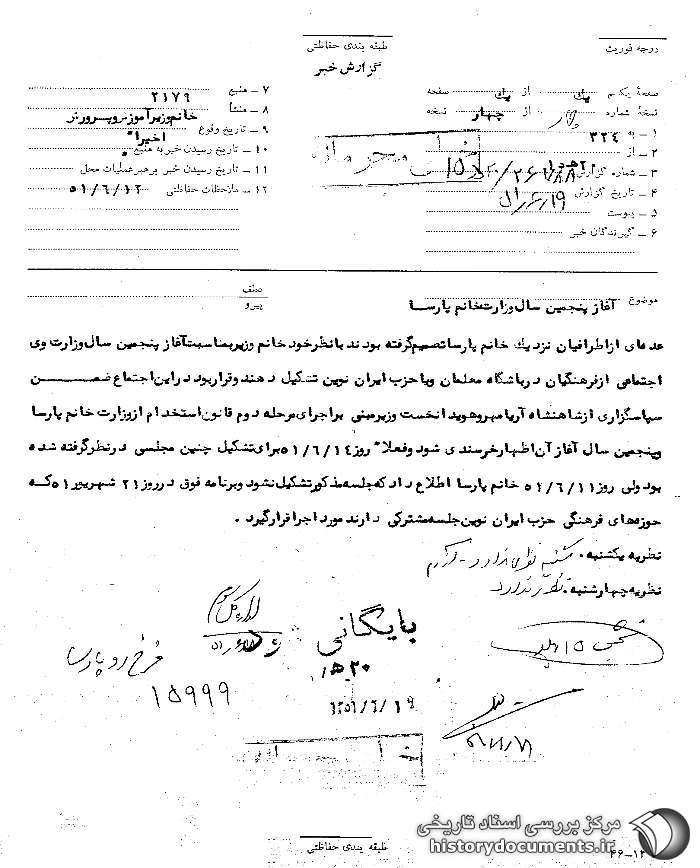 درجه فوریت
طبقه بندی حفاظتی
گزارش خبر
صفحهٔ یکم یک از یک صفحه
نسخهٔ شماره از چهار نسخه
۱ - به ۳۲۴
۲ - از
۳ - شماره گزارش
۴ - تاریخ گزارش ۵۱/۶/۱۹
۵ - پیوست
۶ - گیرندگان خبر
۷ - منبع ۲۱۷۹
۸ - منشأ خانم وزیر آموزش و پرورش
۹ - تاریخ وقوع اخیراً
۱۰ - تاریخ رسیدن خبر به منبع
۱۱ - تاریخ رسیدن خبر به رهبر عملیات محل
۱۲ - ملاحظات حفاظتی ۵۱/۶/۱۲
موضوع آغاز پنجمین سال وزارت خانم پارسا
عطف
پیرو
عده‌ای از اطرافیان نزدیك خانم پارسا تصمیم گرفته بودند با نظر خود خانم وزیر بمناسبت آغاز پنجمین سال وزارت وی
اجتماعی از فرهنگیان در باشگاه معلمان ویا حزب ایران نوین تشکیل دهند و قرار بود در این اجتماع ضمن
سپاسگزاری از شاهنشاه آریامهر و هویدا نخست وزیر مبنی بر اجرای مرحله دوم قانون استخدام از وزارت خانم پارسا
و پنجمین سال آغاز آن اظهار خرسندی شود و فعلاً روز ۵۱/۶/۱۴ برای تشکیل چنین مجلسی در نظر گرفته شده
بود ولی روز ۵۱/۶/۱۱ خانم پارسا اطلاع داد که جلسه مذکور تشکیل نشود و برنامه فوق در روز ۲۱ شهریور ۵۱ که
حوزه‌های فرهنگی حزب ایران نوین جلسه مشترکی دارند مورد اجرا قرار گیرد .
نظریه یکشنبه .
نظریه چهارشنبه . نظری ندارد
بایگانی
۱۵ ه‍ ۲۰
۱۳۵۱/۶/۱۹
فرخ رو پارسا
۱۵۹۹۹
طبقه بندی حفاظتی
مرکز بررسی اسناد تاریخی
historydocuments.ir